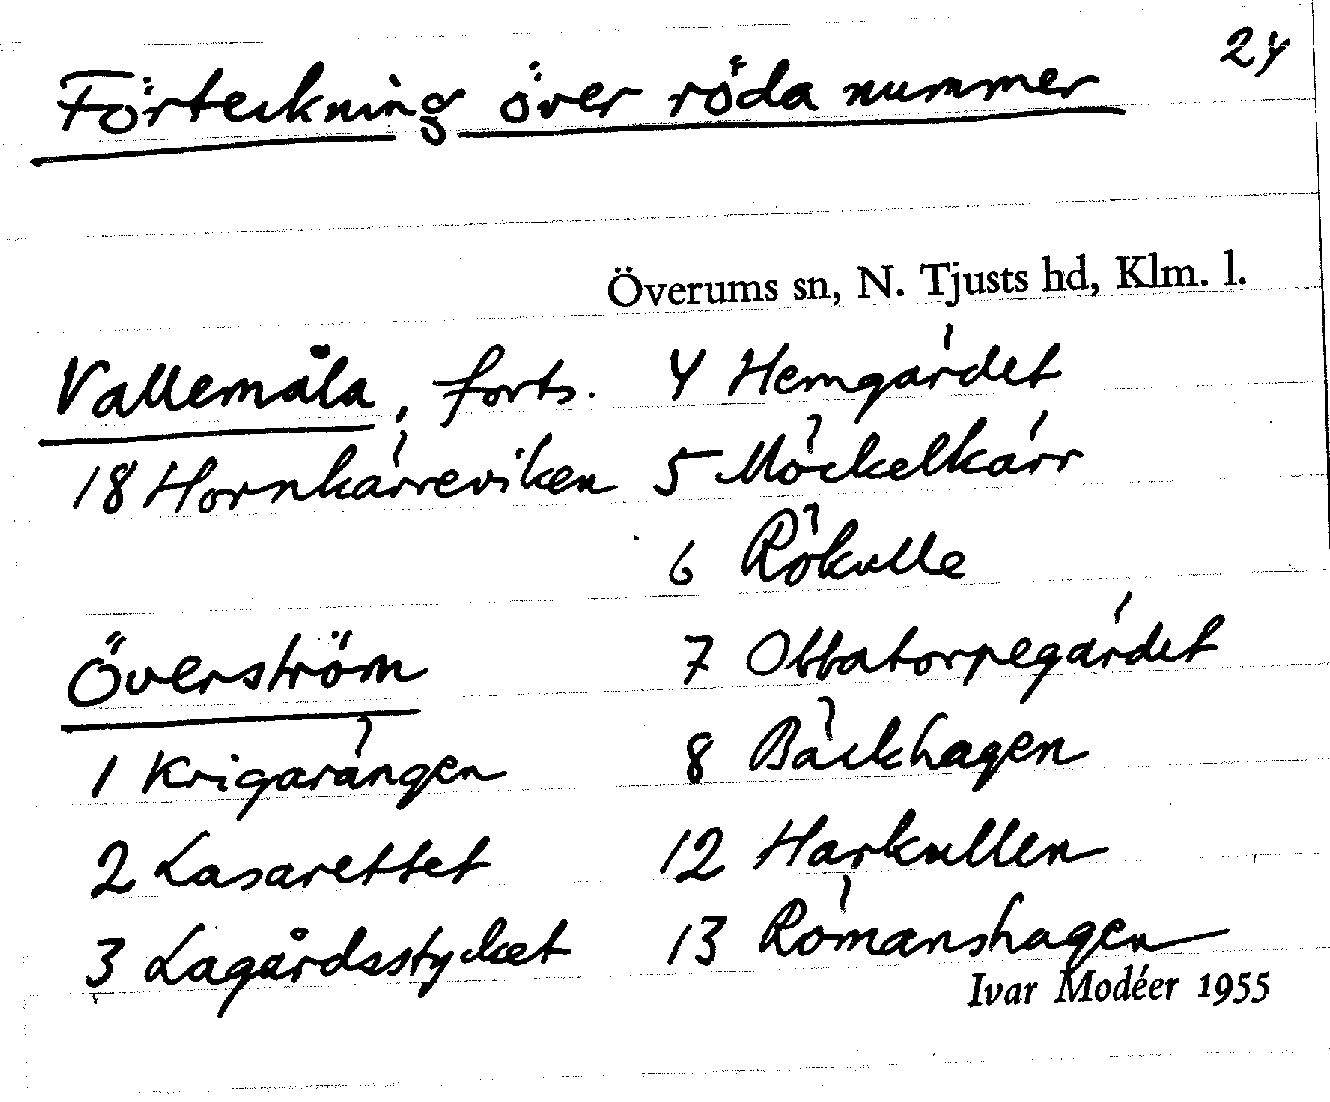 24
Förteckning över röda nummer
Överums sn, N. Tjusts hd, Klm. l.
Vallemåla, forts.
18 Hornkärreviken
Överström
1 Krigarängen
2 Lasarettet
3 Lagårdsstycket
4 Hemgärdet
5 Möckelkärr
6 Rökulle
7 Obbatorpegärdet
8 Bäckhagen
12 Harkullen
13 Römanshagen
Ivar Modéer 1955